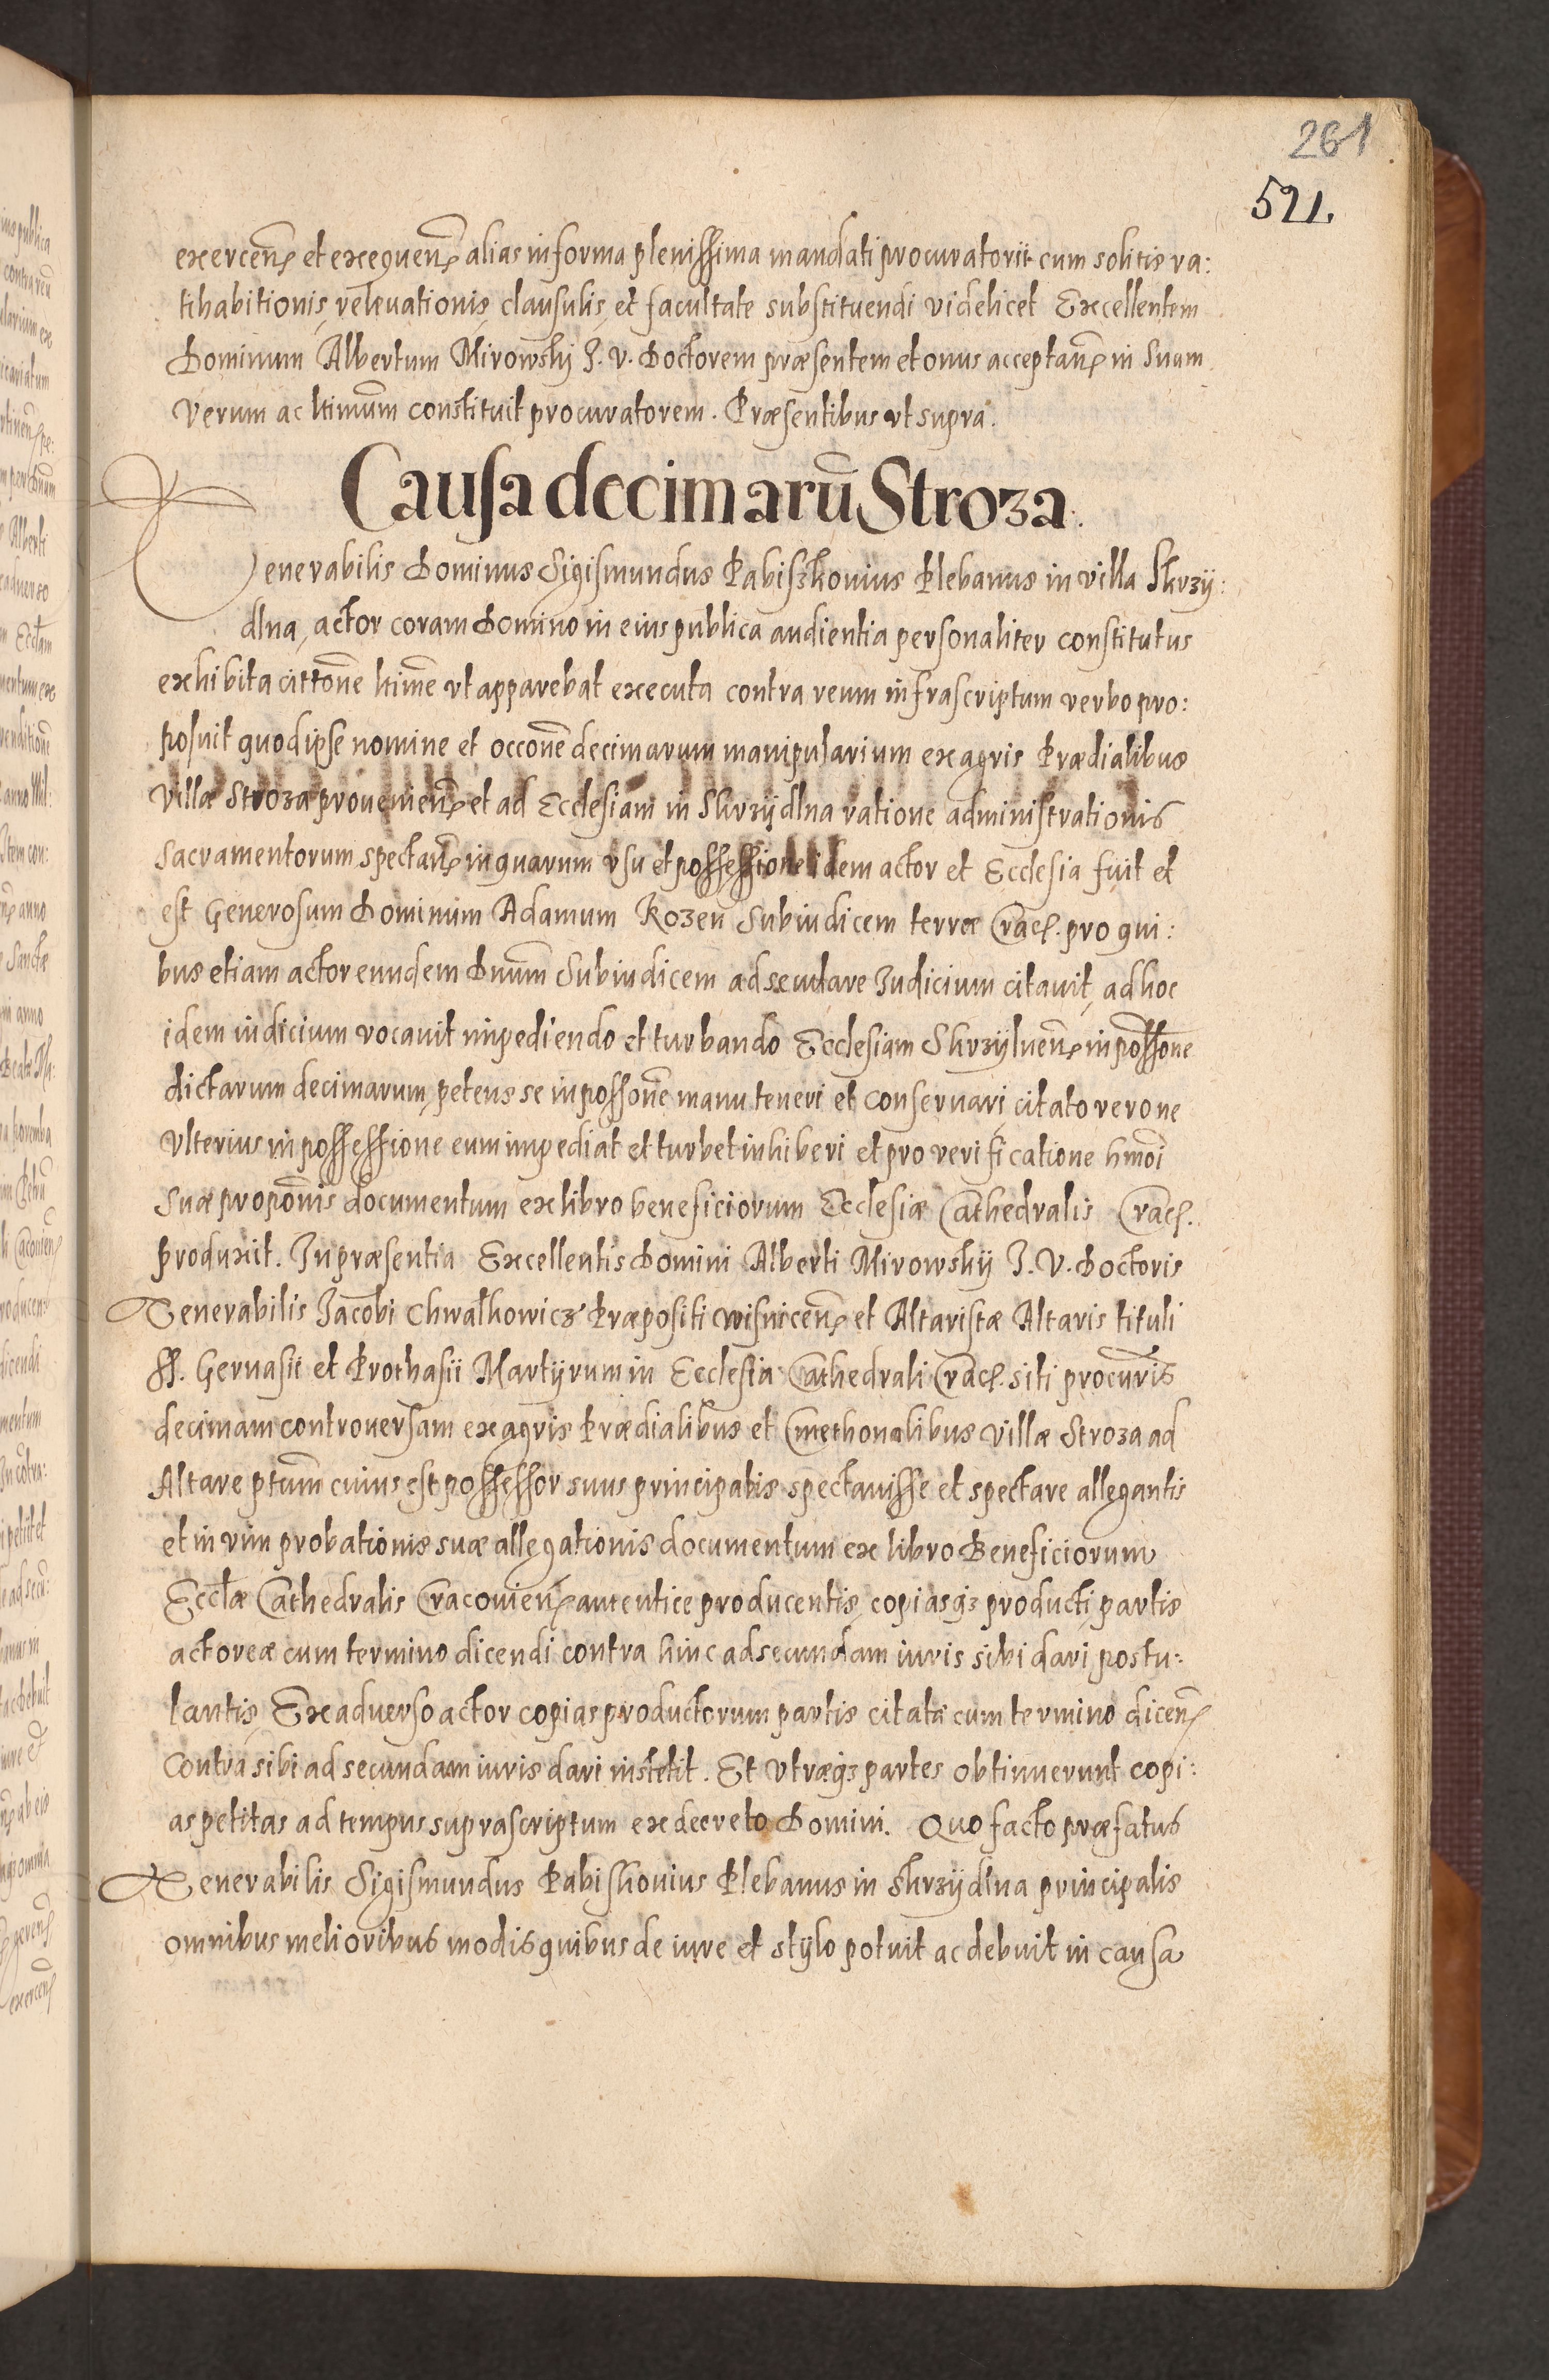 261
521.
exercen̄ et exequen̄ alias in forma plenissima mandati procuratorii cum solitis ra:
tihabitionis, relevationis, clausulis, et facultate substituendi videlicet Excellentem
Dominum Albertum Mirowskij J. V. Doctorem præsentem et onus acceptan̄ in suum
verum ac ltimūm constituit procuratorem. Præsentibus vt supra.
Causa decimarū Stroza.
Venerabilis Dominus Sigismundus Pabiszkonius Plebanus in villa Skrzÿ:
dlna, actor coram Domino in eius publica audientia personaliter constitutus
exhibita cittōne ltimē vt apparebat executa contra reum infrascriptum verbo pro:
posuit quod ipse nomine et occōne decimarum manipularium ex agris Prædialibus
villæ Stroza prouenien̄ et ad Ecclesiam in Skrzÿdlna ratione administrationis
sacramentorum spectan̄ in quarum vsu et possessione idem actor et Ecclesia fuit et
est Generosum Dominum Adamum Rozen Subiudicem terræ Crac̄. pro qui:
bus etiam actor eundem Dnūm Subiudicem ad seculare Iudicium citauit, ad hoc
idem iudicium vocauit impediendo et turbando Ecclesiam Skrzÿlnen̄ in possōne
dictarum decimarum, petens se in possōne manuteneri et conseruari, citato vero ne
vlterius in possessione eum impediat et turbet inhiberi et pro verificatione hmōi
suæ propōnis documentum ex libro beneficiorum Ecclesiæ Cathedralis Crac̄.
produxit. In præsentia Excellentis Domini Alberti Mirowskij J. V. Doctoris
Venerabilis Jacobi Chwalkowicz Præpositi wisnicen̄ et Altaristæ Altaris tituli
SS. Geruasii et Prothasii Martÿrum in Ecclesia Cathedrali Crac̄. siti procūris
decimam controuersam ex agris Prædialibus et Cmethonalibus villæ Stroza ad
Altare ptūm cuius est possessor suus principalis spectauisse et spectare allegantis
et in vim probationis suæ allegationis documentum ex libro Beneficiorum
Eccłæ Cathedralis Cracouien̄ autentice producentis, copiasqȝ producti partis
actoreæ cum termino dicendi contra hinc ad secundam iuris sibi dari postu:
lantis, Ex aduerso actor copias productorum partis citatæ cum termino dicen̄
contra sibi ad secundam iuris dari institit. Et vtræqȝ partes obtinuerunt copi:
as petitas ad tempus suprascriptum ex decreto Domini. Quo facto præfatus
Venerabilis Sigismundus Pabiskonius Plebanus in Skrzÿdlna principalis
omnibus melioribus modis quibus de iure et stÿlo potuit ac debuit in causa